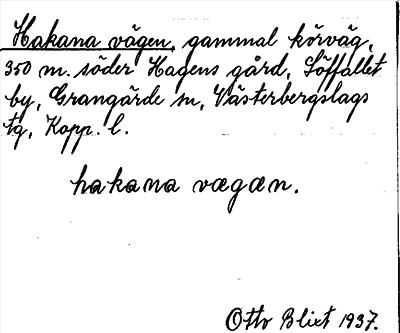 Hakana vägen, gammal körväg,
350 m. söder Hagens gård, Söffallet
by, Grangärde sn, Västerbergslags
tg, Kopp. l.
hakana vægæn.
Otto Blixt 1937.